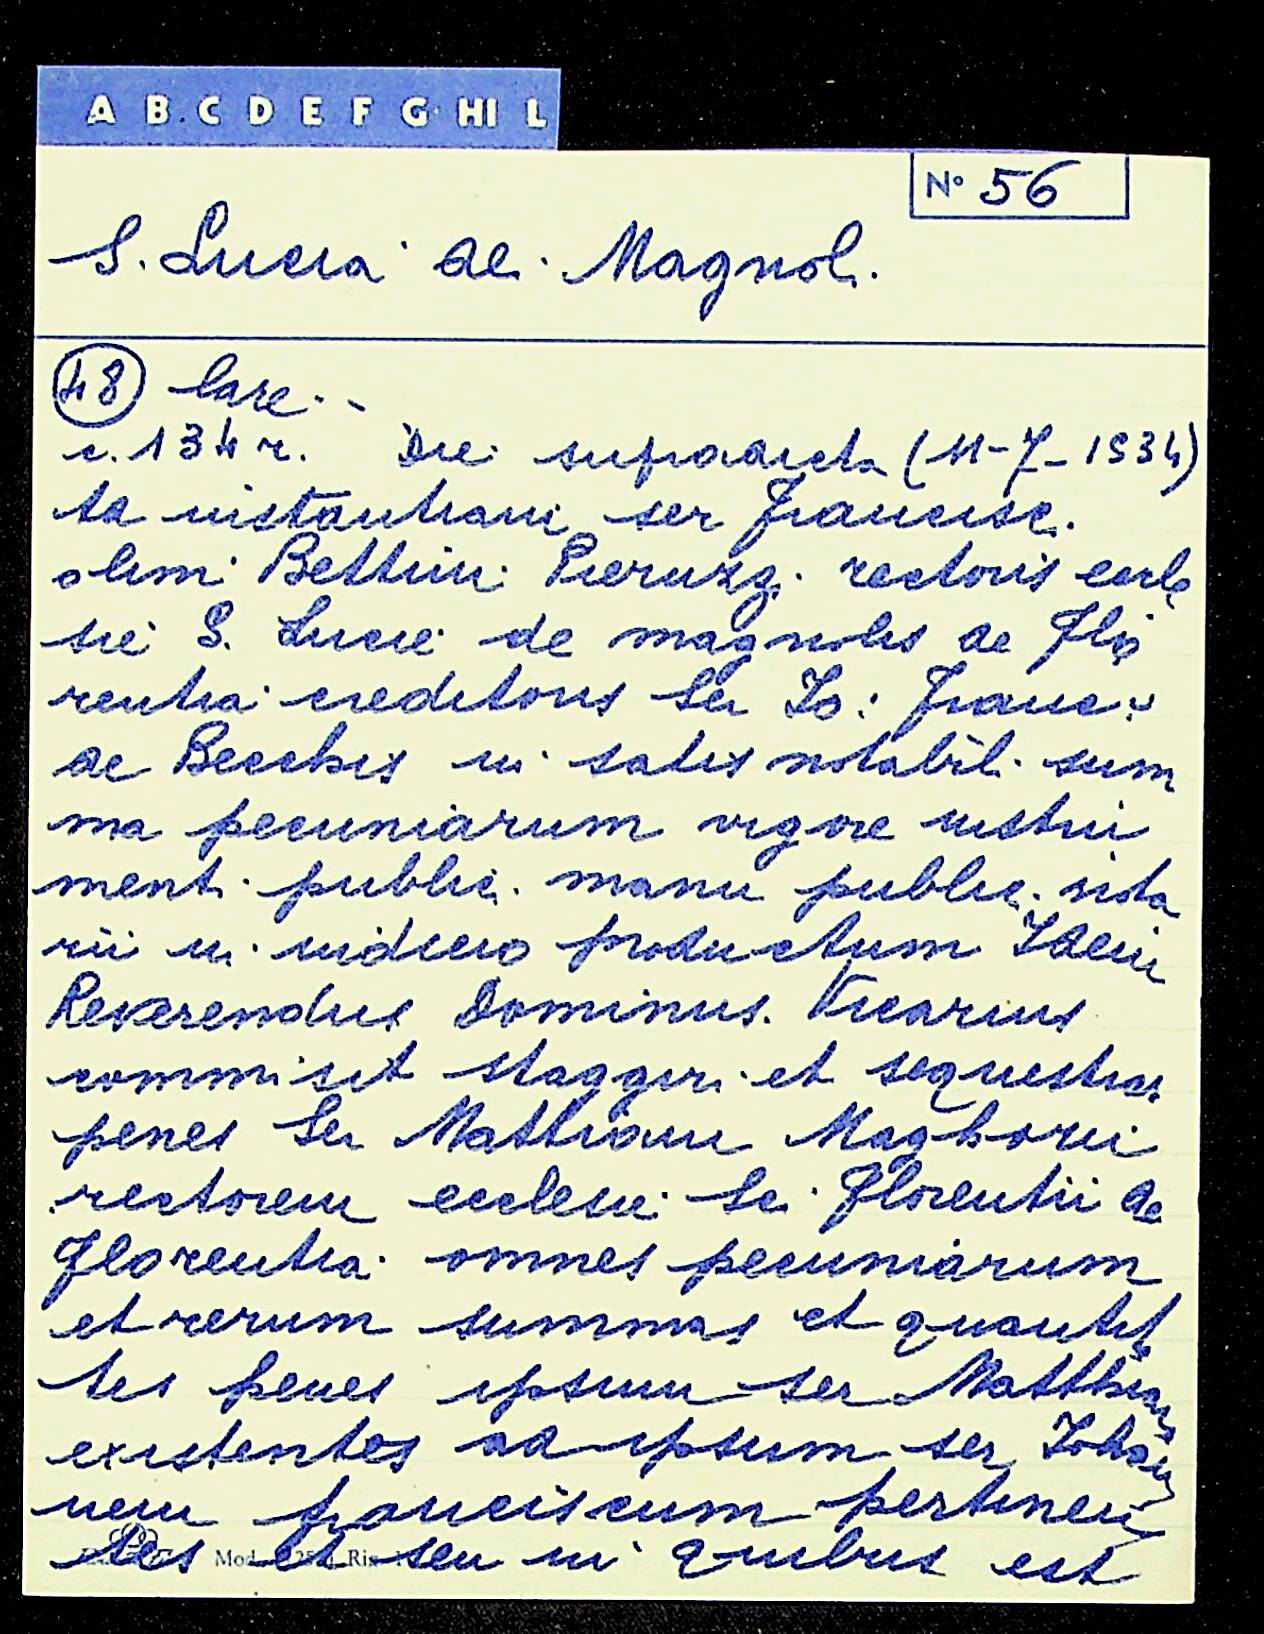 A B.C D E F G HI L
Nº 56
S. Lucia de Magnol.
48 Care..
c. 134 r. Die supradicta (11-7-1534)
ta instantiam ser Francisc.
olim Bettini Pieruzz. rectoris eccle
sie S. Lucie de magnolis de Flo
rentia creditoris Ser Io: Franc:
de Becchis in satis notabil. sum
ma pecuniarum vigore instru
ment. public. manu public. nota
rii in iudicio productum Idem
Reverendus Dominus Vicarius
commisit staggiri et sequestrar
penes Ser Matthiam Maghorii
rectorem ecclesie Sc. Florentii de
Florentia omnes pecuniarum
et rerum summas et quantit
tes penes ipsum ser Matthiam
existentes ad ipsum ser Johan
nem franciscum pertinen
tes et seu in quibus est
Mod. Ris